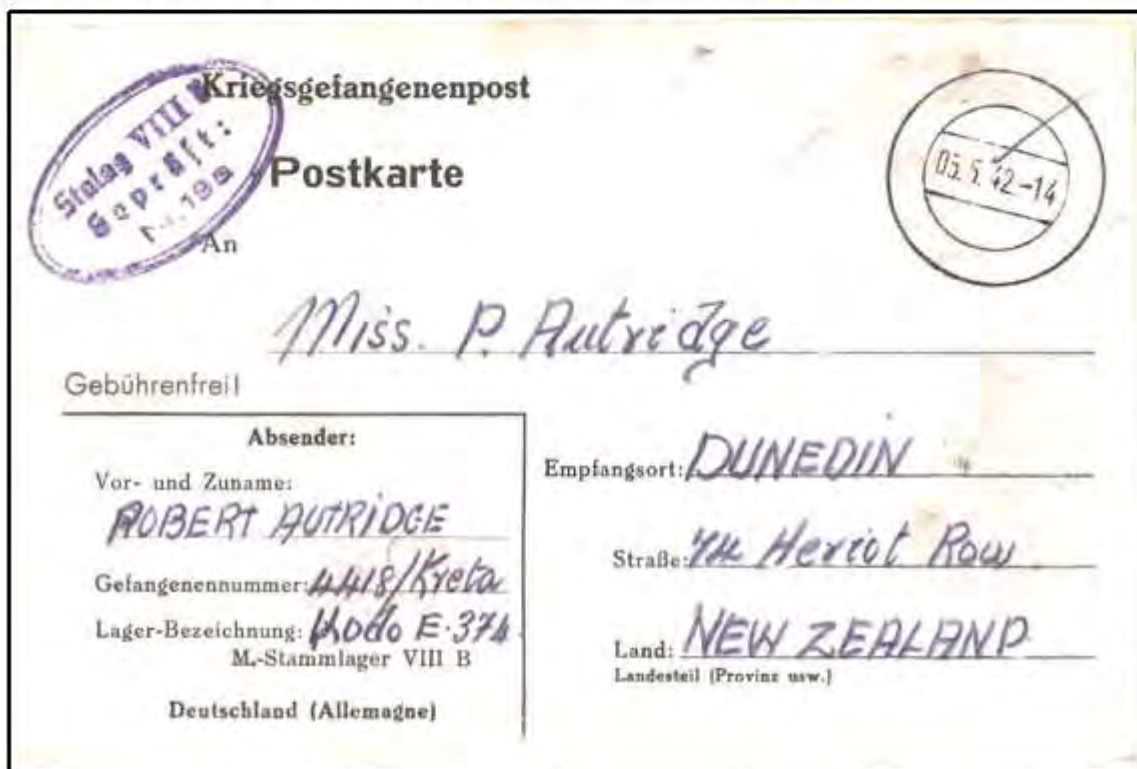 Kriegsgefangenenpost
Stalag VIII B
Geprüft:
Postkarte
05.5.42-14
An
Miss. P. Autridge
Gebührenfrei!
Absender:
Vor- und Zuname:
ROBERT AUTRIDGE
Gefangenennummer: 4418/Kreta
Lager-Bezeichnung: E.374
M.-Stammlager VIII B
Deutschland (Allemagne)
Empfangsort: DUNEDIN
Straße: Heriot Row
Land: NEW ZEALAND
Landesteil (Provinz usw.)